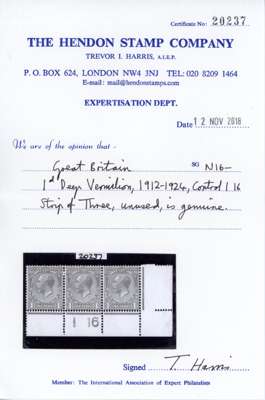 Certificate No: 20237
THE HENDON STAMP COMPANY
TREVOR I. HARRIS, A.I.E.P.
P. O. BOX 624, LONDON NW4 3NJ TEL: 020 8209 1464
E-mail: mail@hendonstamps.com
EXPERTISATION DEPT.
Date 12 NOV 2018
We are of the opinion that -
Great Britain SG N16-
1d Deep Vermilion, 1912-1924, Control I 16
Strip of Three, unused, is genuine.
20237
I 16
Signed T. Harris
Member: The International Association of Expert Philatelists